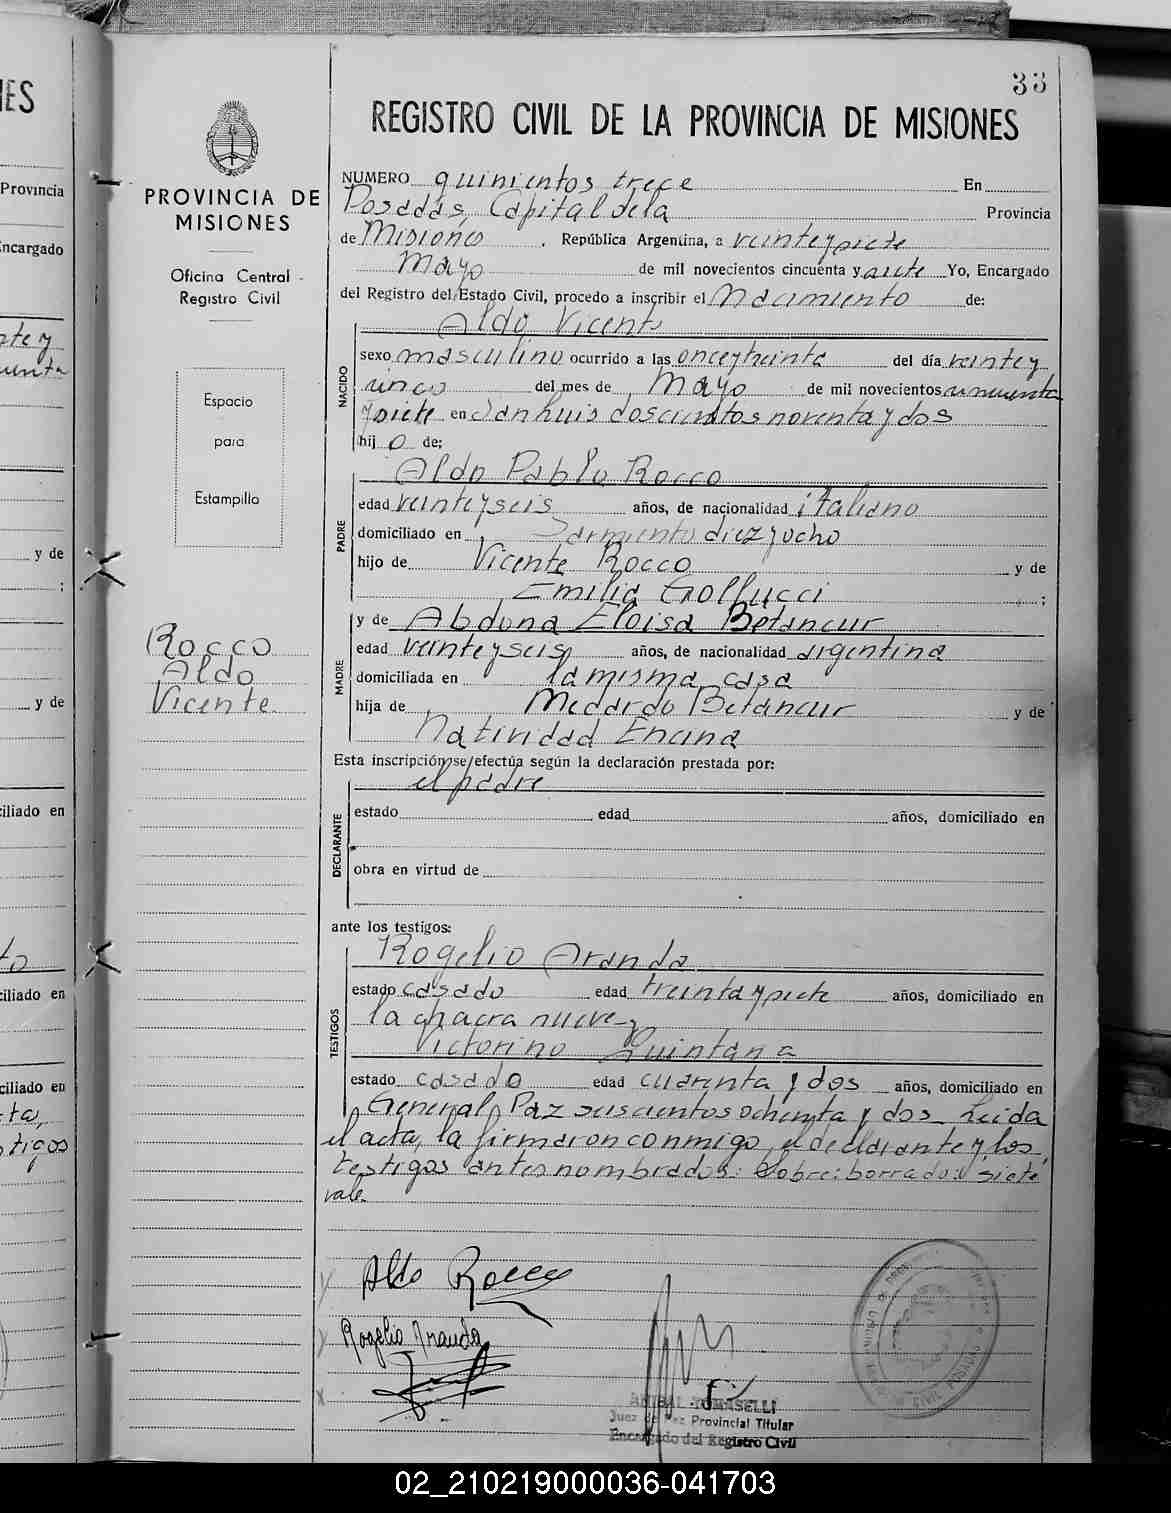 33
REGISTRO CIVIL DE LA PROVINCIA DE MISIONES
PROVINCIA DE
MISIONES
Oficina Central -
Registro Civil
Espacio
para
Estampilla
Rocco
Aldo
Vicente
NUMERO quinientos trece En
Posadas, Capital de la Provincia
de Misiones, República Argentina, a veinteysiete
Mayo de mil novecientos cincuenta y siete Yo, Encargado
del Registro del Estado Civil, procedo a inscribir el Nacimiento de:
Aldo Vicente
NACIDO
sexo masculino ocurrido a las onceytreinta del día veintey
cinco del mes de Mayo de mil novecientos cincuenta
ysiete en San Luis doscientos noventa y dos
hij o de:
Aldo Pablo Rocco
PADRE
edad veinteyseis años, de nacionalidad italiano
domiciliado en Sarmiento diez y ocho
hijo de Vicente Rocco y de
Emilia Gollucci ;
y de Abdona Eloisa Betancur
MADRE
edad veinteyseis años, de nacionalidad argentina
domiciliada en la misma casa
hija de Medardo Betancur y de
Natividad Encina
Esta inscripción se efectúa según la declaración prestada por:
el padre
DECLARANTE
estado edad años, domiciliado en
obra en virtud de
ante los testigos:
Rogelio Aranda
TESTIGOS
estado casado edad treinta y siete años, domiciliado en
la chacra nueve y
Victorino Quintana
estado casado edad cuarenta y dos años, domiciliado en
General Paz seiscientos ochenta y dos. Leida
el acta, la firmaron conmigo, el declarante y los
testigos antes nombrados: Sobre: borrado: siete
vale.
Aldo Rocco
Rogelio Aranda
ANIBAL TOMASELLI
Juez de Paz Provincial Titular
Encargado del Registro Civil
IES
Provincia
ncargado
y de
;
y de
ciliado en
ciliado en
ciliado en
02_210219000036-041703